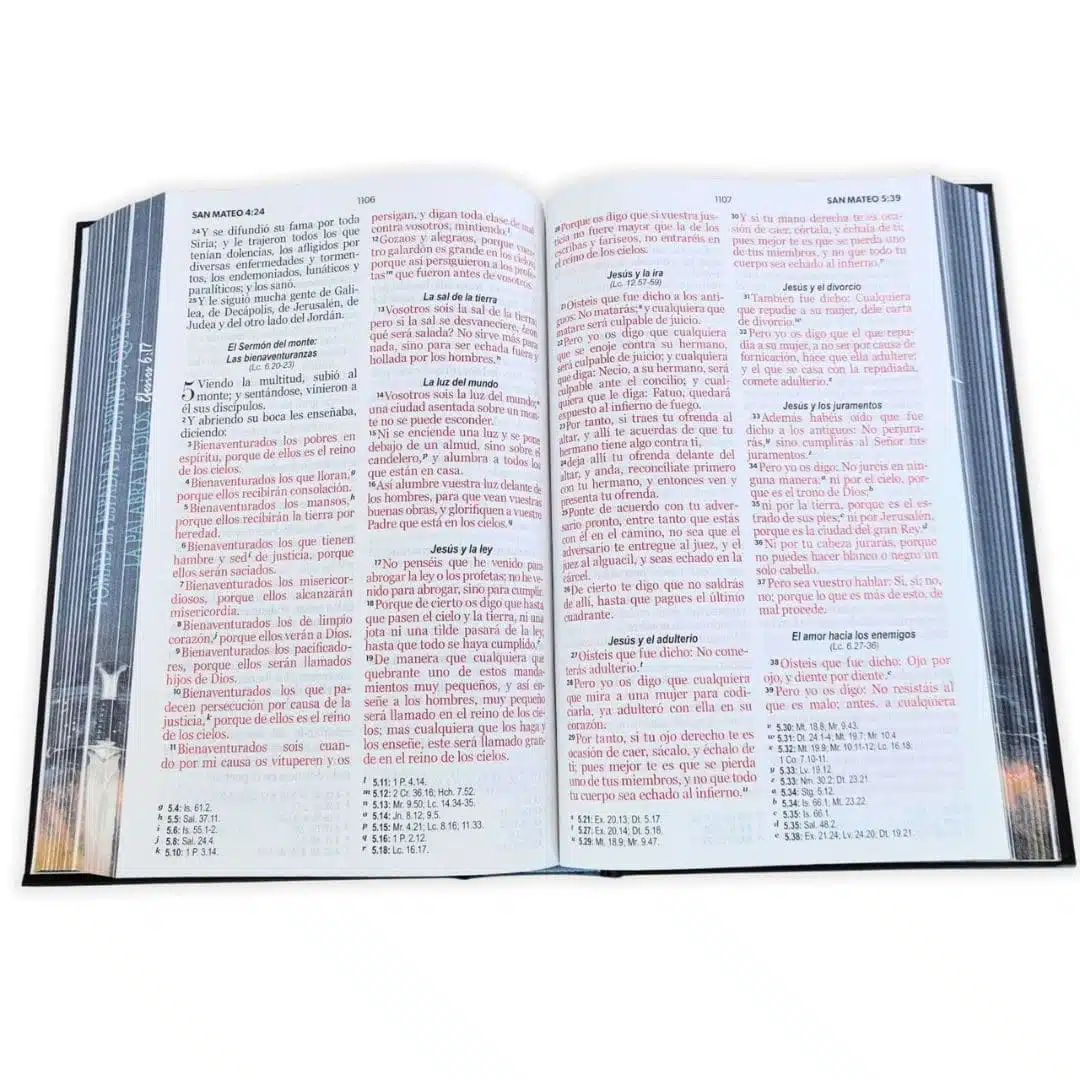 SAN MATEO 4:24
1106
24Y se difundió su fama por toda
Siria; y le trajeron todos los que
tenían dolencias, los afligidos por
diversas enfermedades y tormen-
tos, los endemoniados, lunáticos y
paralíticos; y los sanó.
25Y le siguió mucha gente de Gali-
lea, de Decápolis, de Jerusalén, de
Judea y del otro lado del Jordán.
El Sermón del monte:
Las bienaventuranzas
(Lc. 6.20-23)
5 Viendo la multitud, subió al
monte; y sentándose, vinieron a
él sus discípulos.
2Y abriendo su boca les enseñaba,
diciendo:
3Bienaventurados los pobres en
espíritu, porque de ellos es el reino
de los cielos.
4Bienaventurados los que lloran,g
porque ellos recibirán consolación.
5Bienaventurados los mansos,h
porque ellos recibirán la tierra por
heredad.
6Bienaventurados los que tienen
hambre y sedi de justicia, porque
ellos serán saciados.
7Bienaventurados los misericor-
diosos, porque ellos alcanzarán
misericordia.
8Bienaventurados los de limpio
corazón,j porque ellos verán a Dios.
9Bienaventurados los pacificado-
res, porque ellos serán llamados
hijos de Dios.
10Bienaventurados los que pa-
decen persecución por causa de la
justicia,k porque de ellos es el reino
de los cielos.
11Bienaventurados sois cuan-
do por mi causa os vituperen y os
g 5.4: Is. 61.2.
h 5.5: Sal. 37.11.
i 5.6: Is. 55.1-2.
j 5.8: Sal. 24.4.
k 5.10: 1 P. 3.14.
persigan, y digan toda clase de mal
contra vosotros, mintiendo.l
12Gozaos y alegraos, porque vues-
tro galardón es grande en los cielos;
porque así persiguieron a los profe-
tasm que fueron antes de vosotros.
La sal de la tierra
13Vosotros sois la sal de la tierra;
pero si la sal se desvaneciere, ¿con
qué será salada? No sirve más para
nada, sino para ser echada fuera y
hollada por los hombres.n
La luz del mundo
14Vosotros sois la luz del mundo;o
una ciudad asentada sobre un mon-
te no se puede esconder.
15Ni se enciende una luz y se pone
debajo de un almud, sino sobre el
candelero,p y alumbra a todos los
que están en casa.
16Así alumbre vuestra luz delante de
los hombres, para que vean vuestras
buenas obras, y glorifiquen a vuestro
Padre que está en los cielos.q
Jesús y la ley
17No penséis que he venido para
abrogar la ley o los profetas; no he ve-
nido para abrogar, sino para cumplir.
18Porque de cierto os digo que hasta
que pasen el cielo y la tierra, ni una
jota ni una tilde pasará de la ley,
hasta que todo se haya cumplido.r
19De manera que cualquiera que
quebrante uno de estos manda-
mientos muy pequeños, y así en-
señe a los hombres, muy pequeño
será llamado en el reino de los cie-
los; mas cualquiera que los haga y
los enseñe, este será llamado gran-
de en el reino de los cielos.
l 5.11: 1 P. 4.14.
m 5.12: 2 Cr. 36.16; Hch. 7.52.
n 5.13: Mr. 9.50; Lc. 14.34-35.
o 5.14: Jn. 8.12; 9.5.
p 5.15: Mr. 4.21; Lc. 8.16; 11.33.
q 5.16: 1 P. 2.12.
r 5.18: Lc. 16.17.
1107
SAN MATEO 5:39
20Porque os digo que si vuestra jus-
ticia no fuere mayor que la de los
escribas y fariseos, no entraréis en
el reino de los cielos.
Jesús y la ira
(Lc. 12.57-59)
21Oísteis que fue dicho a los anti-
guos: No matarás;s y cualquiera que
matare será culpable de juicio.
22Pero yo os digo que cualquiera
que se enoje contra su hermano,
será culpable de juicio; y cualquiera
que diga: Necio, a su hermano, será
culpable ante el concilio; y cual-
quiera que le diga: Fatuo, quedará
expuesto al infierno de fuego.
23Por tanto, si traes tu ofrenda al
altar, y allí te acuerdas de que tu
hermano tiene algo contra ti,
24deja allí tu ofrenda delante del
altar, y anda, reconcíliate primero
con tu hermano, y entonces ven y
presenta tu ofrenda.
25Ponte de acuerdo con tu adver-
sario pronto, entre tanto que estás
con él en el camino, no sea que el
adversario te entregue al juez, y el
juez al alguacil, y seas echado en la
cárcel.
26De cierto te digo que no saldrás
de allí, hasta que pagues el último
cuadrante.
Jesús y el adulterio
27Oísteis que fue dicho: No come-
terás adulterio.t
28Pero yo os digo que cualquiera
que mira a una mujer para codi-
ciarla, ya adulteró con ella en su
corazón.
29Por tanto, si tu ojo derecho te es
ocasión de caer, sácalo, y échalo de
ti; pues mejor te es que se pierda
uno de tus miembros, y no que todo
tu cuerpo sea echado al infierno.u
s 5.21: Ex. 20.13; Dt. 5.17.
t 5.27: Ex. 20.14; Dt. 5.18.
u 5.29: Mt. 18.9; Mr. 9.47.
30Y si tu mano derecha te es oca-
sión de caer, córtala, y échala de ti;
pues mejor te es que se pierda uno
de tus miembros, y no que todo tu
cuerpo sea echado al infierno.v
Jesús y el divorcio
31También fue dicho: Cualquiera
que repudie a su mujer, dele carta
de divorcio.w
32Pero yo os digo que el que repu-
dia a su mujer, a no ser por causa de
fornicación, hace que ella adultere;
y el que se casa con la repudiada,
comete adulterio.x
Jesús y los juramentos
33Además habéis oído que fue
dicho a los antiguos: No perjura-
rás,y sino cumplirás al Señor tus
juramentos.z
34Pero yo os digo: No juréis en nin-
guna manera;a ni por el cielo, por-
que es el trono de Dios;b
35ni por la tierra, porque es el es-
trado de sus pies;c ni por Jerusalén,
porque es la ciudad del gran Rey.d
36Ni por tu cabeza jurarás, porque
no puedes hacer blanco o negro un
solo cabello.
37Pero sea vuestro hablar: Sí, sí; no,
no; porque lo que es más de esto, de
mal procede.
El amor hacia los enemigos
(Lc. 6.27-36)
38Oísteis que fue dicho: Ojo por
ojo, y diente por diente.e
39Pero yo os digo: No resistáis al
que es malo; antes, a cualquiera
v 5.30: Mt. 18.8; Mr. 9.43.
w 5.31: Dt. 24.1-4; Mt. 19.7; Mr. 10.4
x 5.32: Mt. 19.9; Mr. 10.11-12; Lc. 16.18;
1 Co. 7.10-11.
y 5.33: Lv. 19.12.
z 5.33: Nm. 30.2; Dt. 23.21.
a 5.34: Stg. 5.12.
b 5.34: Is. 66.1; Mt. 23.22.
c 5.35: Is. 66.1.
d 5.35: Sal. 48.2.
e 5.38: Ex. 21.24; Lv. 24.20; Dt. 19.21.
TOMAD LA ESPADA DEL ESPÍRITU, QUE ES
LA PALABRA DE DIOS. Efesios 6:17